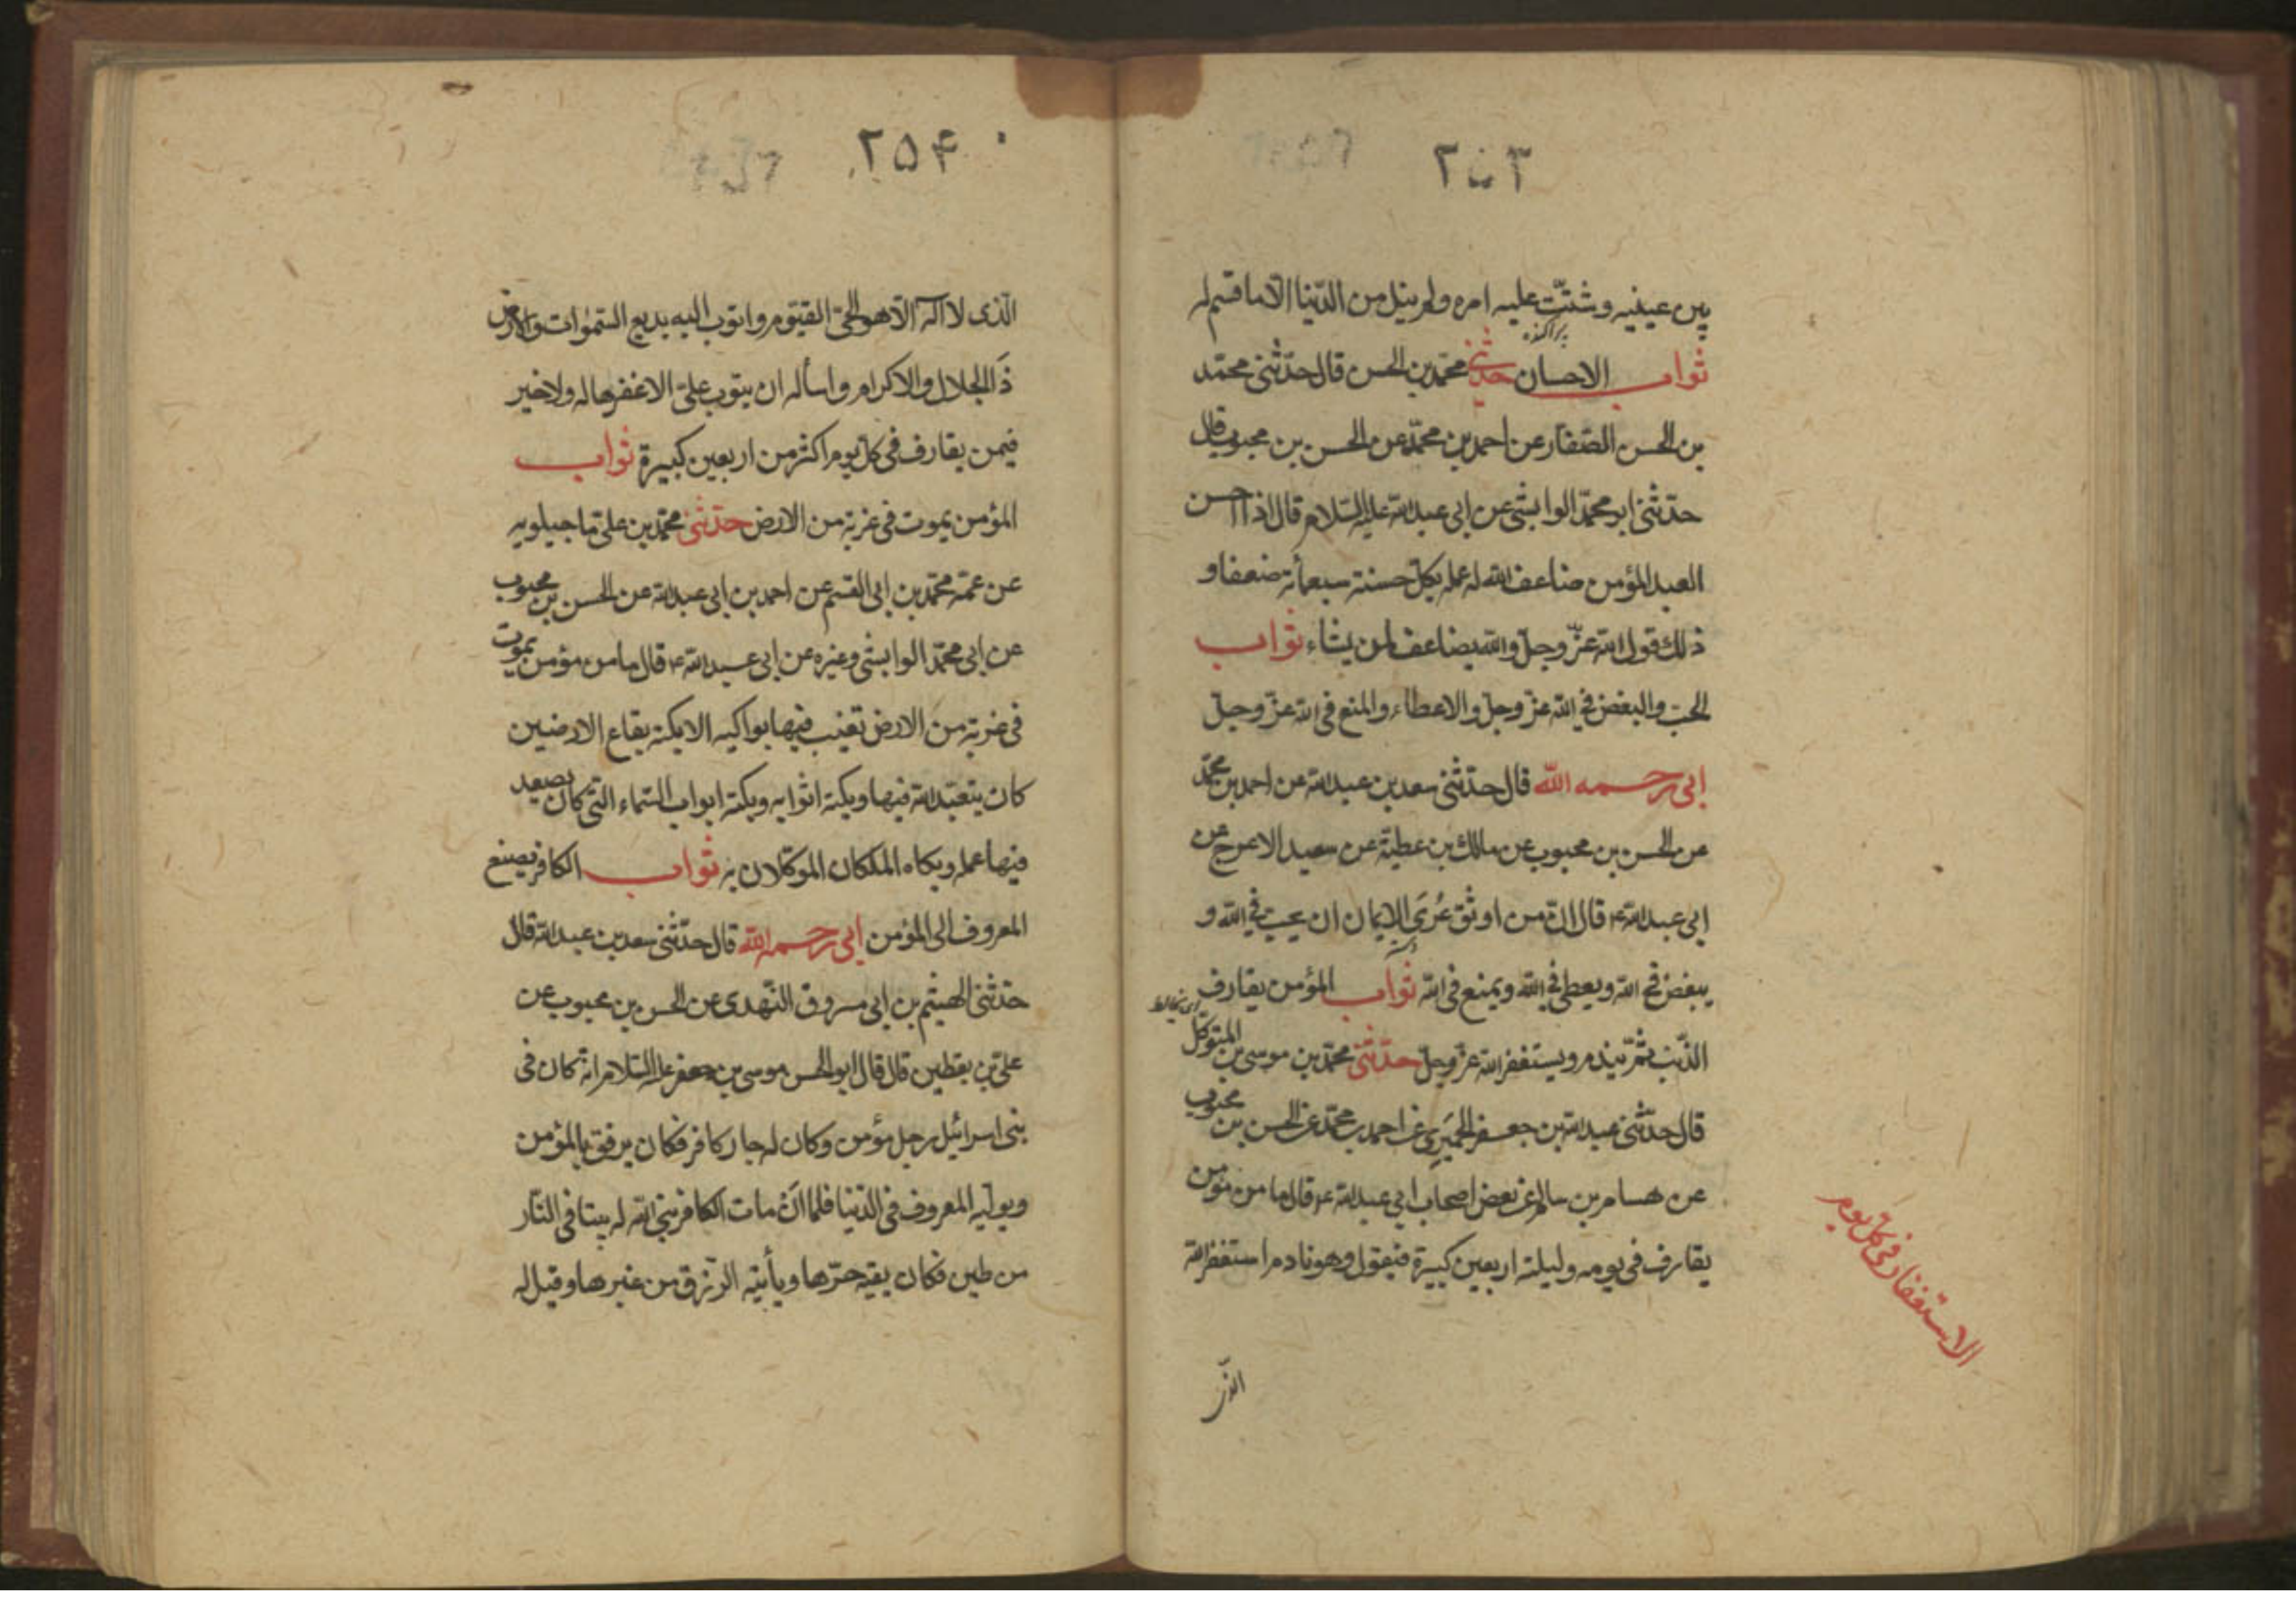 ٢٥٣
بين عينيه وشتّت عليه امره ولم ينل من الدّنيا الّا ما قسم له
پراکنده
ثواب الاحسان حدّثنى محمّد بن الحسن قال حدّثنى محمّد
بن الحسن الصّفّار عن احمد بن محمّد عن الحسن بن محبوب قال
حدّثنى ابو محمّد الوابشى عن ابى عبد الله عليه السّلام قال اذا احسن
العبد المؤمن ضاعف الله له عمله بكلّ حسنة سبعمأئة ضعفا و
ذلك قول الله عزّ وجلّ والله يضاعف لمن يشاء ثواب
الحبّ والبغض فى الله عزّ وجلّ والاعطاء والمنع فى الله عزّ وجلّ
ابى رحمه الله قال حدّثنى سعد بن عبد الله عن احمد بن محمّد
عن الحسن بن محبوب عن مالك بن عطيّة عن سعيد الاعرج عن
ابى عبد الله ع قال انّ من اوثق عُرَى الايمان ان يحبّ فى الله و
يبغض فى الله ويعطى فى الله ويمنع فى الله ثواب المؤمن يقارف
اى يخالط
الذّنب ثمّ يندم ويستغفر الله عزّ وجلّ حدّثنى محمّد بن موسى بن المتوكّل
قال حدّثنى عبد الله بن جعفر الحميَرِى عن احمد بن محمّد عن الحسن بن محبوب
عن هسام بن سالم عن بعض اصحاب ابى عبد الله ع قال ما من مؤمن
يقارف فى يومه وليلته اربعين كبيرة فيقول وهو نادم استغفر الله
الاستغفار فى كلّ يوم
الّذى
٢٥۴
الّذى لا اله الّا هو الحىّ القيّوم واتوب اليه بديع السّموات والارض
ذَا الجلال والاكرام واسأله ان يتوب علىّ الا غفرها له ولا خير
فيمن يقارف فى كلّ يوم اكثر من اربعين كبيرة ثواب
المؤمن يموت فى غربة من الارض حدّثنى محمّد بن علىّ ماجيلويه
عن عمّه محمّد بن ابى القسم عن احمد بن ابى عبد الله عن الحسن بن محبوب
عن ابى محمّد الوابشى وغيره عن ابى عبد الله ع قال ما من مؤمن يموت
فى غربة من الارض تغيب فيها بواكيه الا بكته بقاع الارضين
كان يتعبّد لله فيها وبكته اثوابه وبكته ابواب السّماء التّى كان يصعد
فيها عمله وبكاه الملكان الموكّلان به ثواب الكافر يصنع
المعروف الى المؤمن ابى رحمه الله قال حدّثنى سعد بن عبد الله قال
حدّثنى الهيثم بن ابى مسروق النّهدى عن الحسن بن محبوب عن
علىّ بن يقطين قال قال ابو الحسن موسى بن جعفر عليه السّلام انّه كان فى
بنى اسرائيل رجل مؤمن وكان له جار كافر فكان يرفق بالمؤمن
ويوليه المعروف فى الدّنيا فلمّا ان مات الكافر بنى الله له بيتا فى النّار
من طين فكان يقيه حرّها ويأتيه الرّزق من غيرها وقيل له